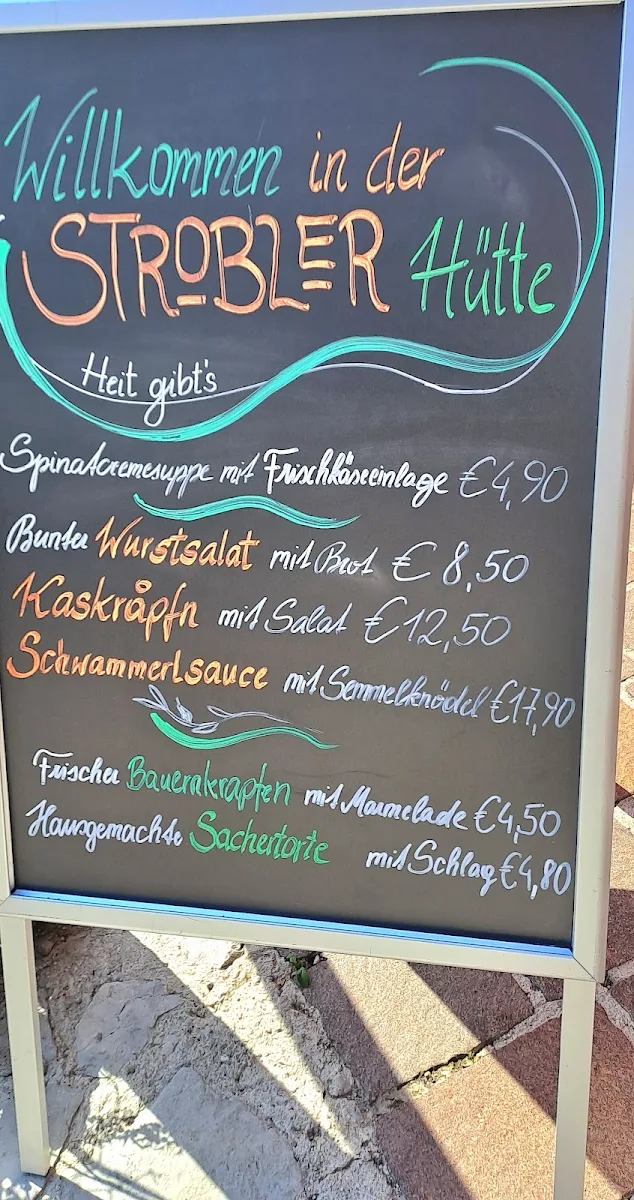 Willkommen in der
STROBLER Hütte
Heit gibt's
Spinatcremesuppe mit Frischkäseeinlage €4,90
Bunter Wurstsalat mit Brot € 8,50
Kaskråpfn mit Salat €12,50
Schwammerlsauce mit Semmelknödel €17,90
Frischer Bauernkrapfen mit Marmelade €4,50
Hausgemachte Sachertorte mit Schlag €4,80